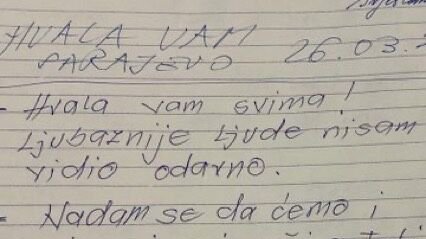 HVALA VAM
SARAJEVO 26.03.
- Hvala vam svima!
Ljubaznije ljude nisam
vidio odavno.
- Nadam se da ćemo i